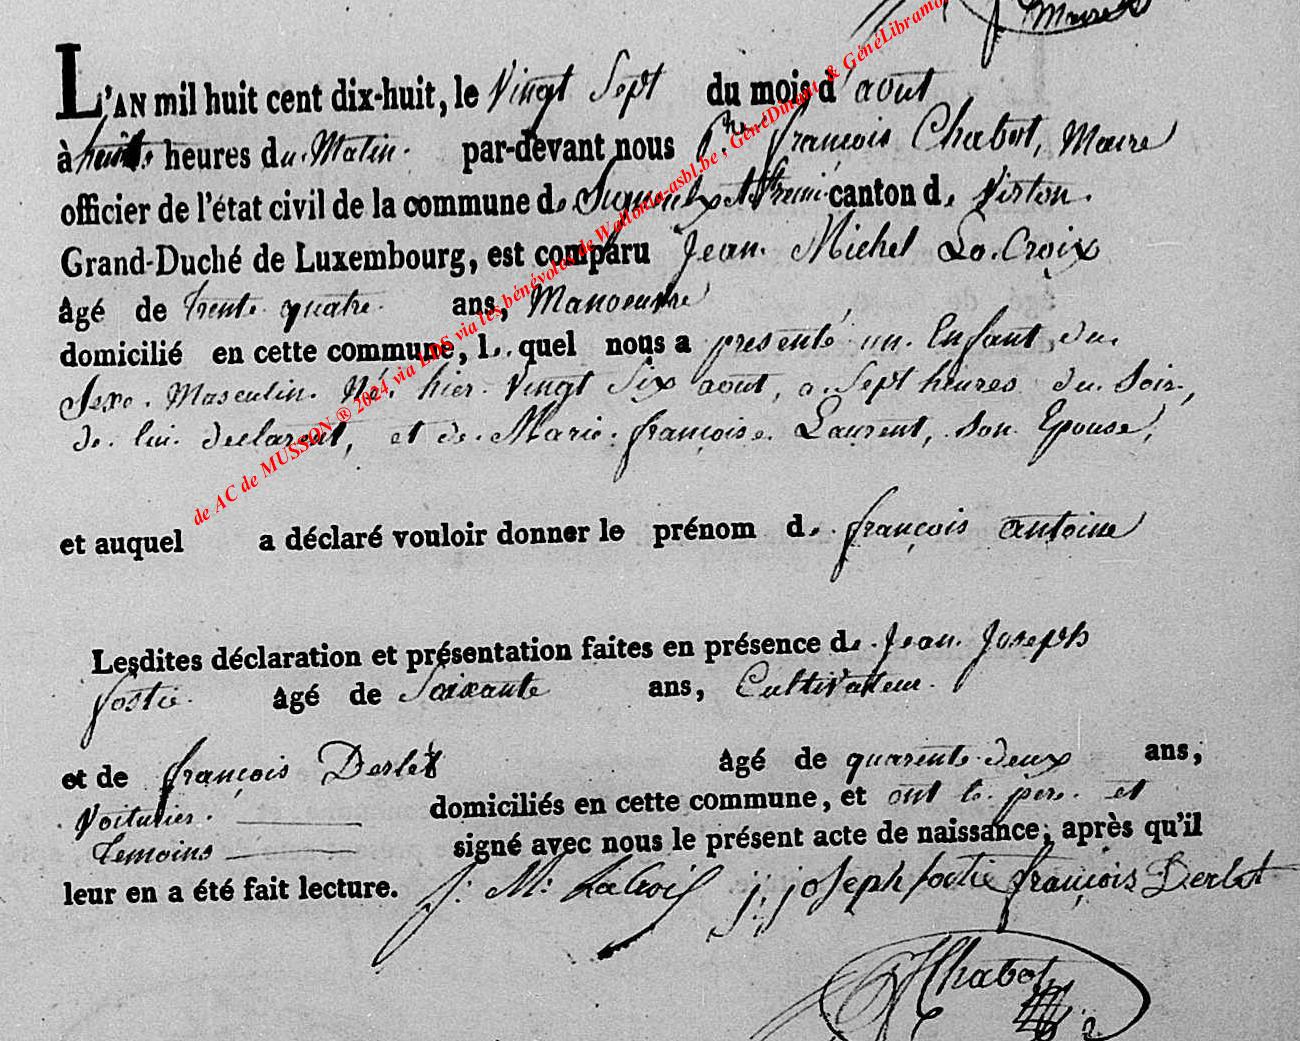 Maire
L'AN mil huit cent dix-huit, le Vingt Sept du mois d'aout
à huit heures du Matin. par-devant nous françois Chabot, Maire
officier de l'état civil de la commune de Signeulx canton de Virton.
Grand-Duché de Luxembourg, est comparu Jean Michel La Croix
âgé de trente quatre ans, Manoeuvre
domicilié en cette commune, lequel nous a presenté un Enfant du
Sexe Masculin Né hier Vingt Six aout, a Sept heures du Soir,
de lui declarent, et de Marie françoise Laurent, son Epouse,
et auquel a déclaré vouloir donner le prénom de françois antoine
Lesdites déclaration et présentation faites en présence de Jean Joseph
fostie âgé de Soixante ans, Cultivateur.
et de françois Derlet âgé de quarente deux ans,
Voiturier. domiciliés en cette commune, et ont le pere et
temoins signé avec nous le présent acte de naissance, après qu'il
leur en a été fait lecture. J: M: LaCroix j: joseph fostie françois Derlet
Chabot
de AC de MUSSON ® 2024 via LDS via les bénévoles de Wallonia-asbl.be, GénéDinant & GénéLibramo